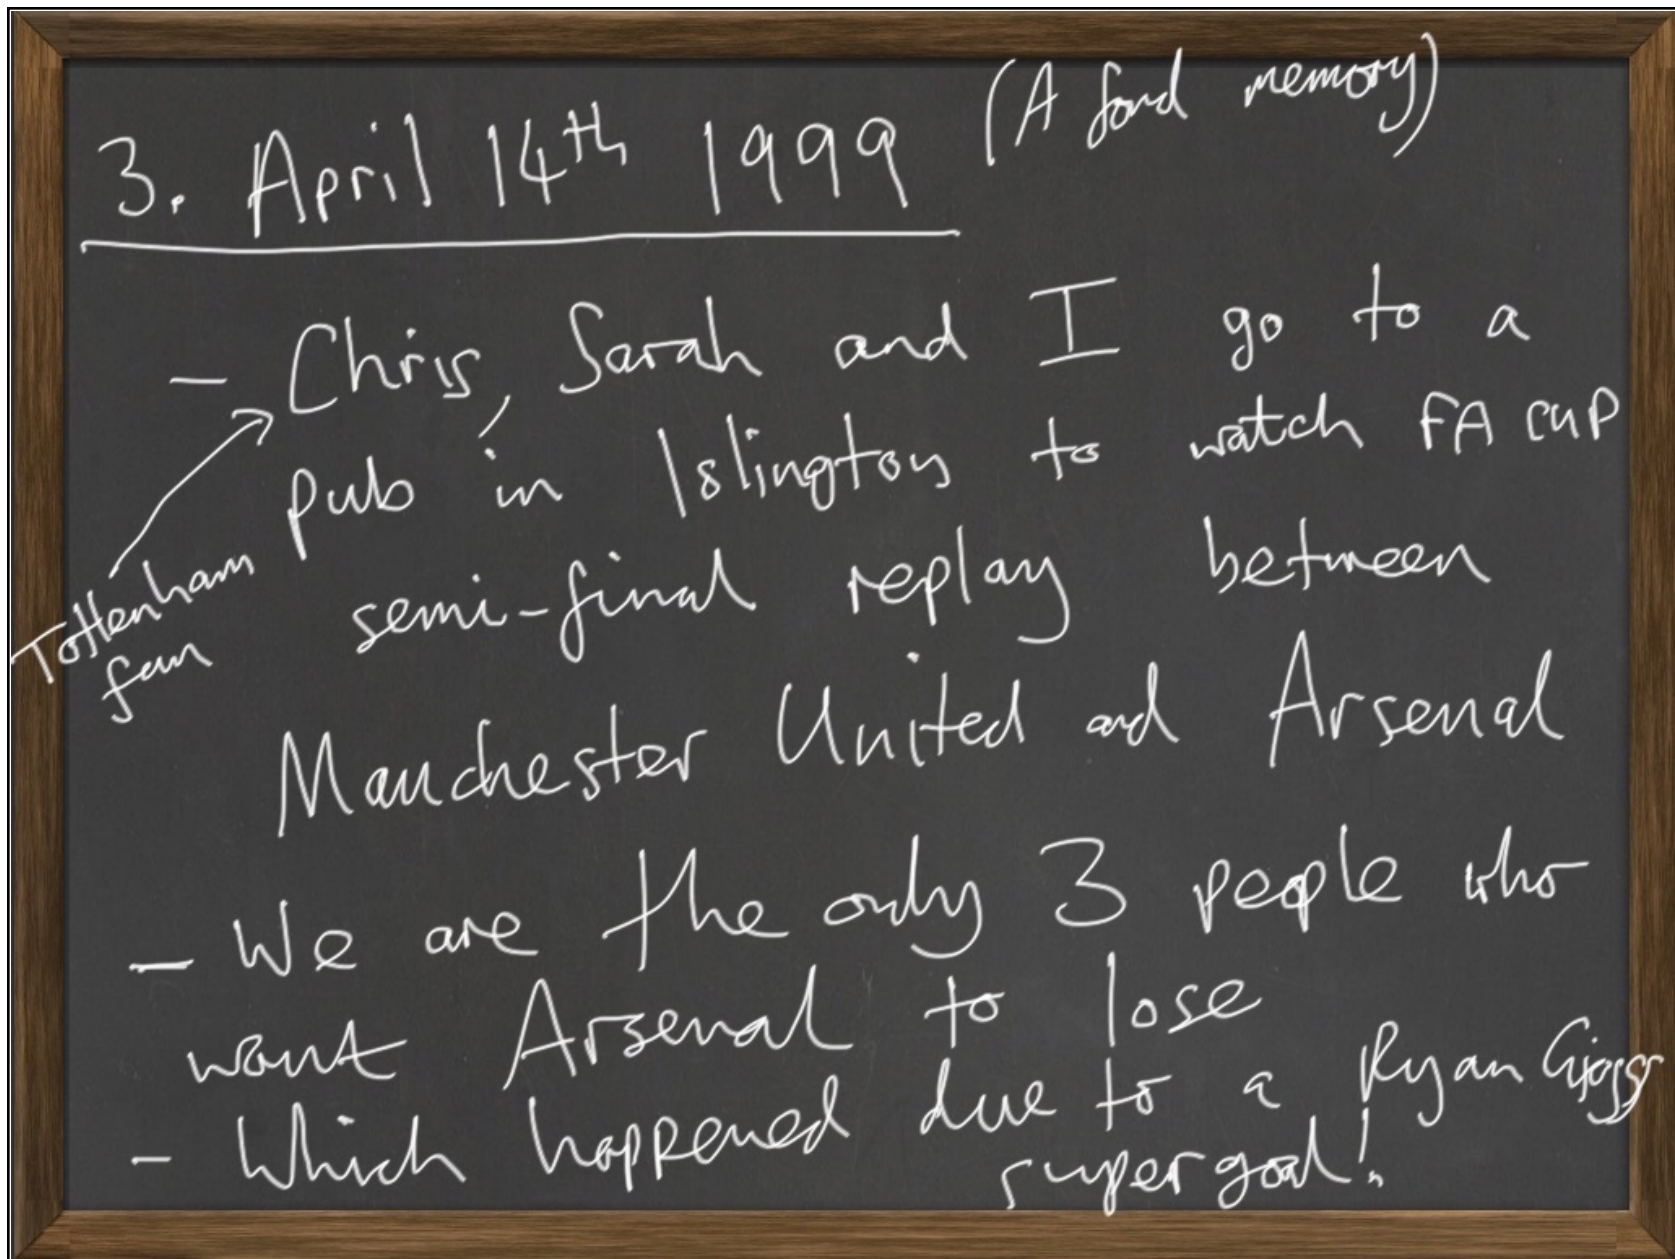 3. April 14th 1999 (A fond memory)
- Chris, Sarah and I go to a
pub in Islington to watch FA CUP
semi-final replay between
Tottenham
fan
Manchester United and Arsenal
- We are the only 3 people who
want Arsenal to lose
- Which happened due to a Ryan Giggs
supergoal!